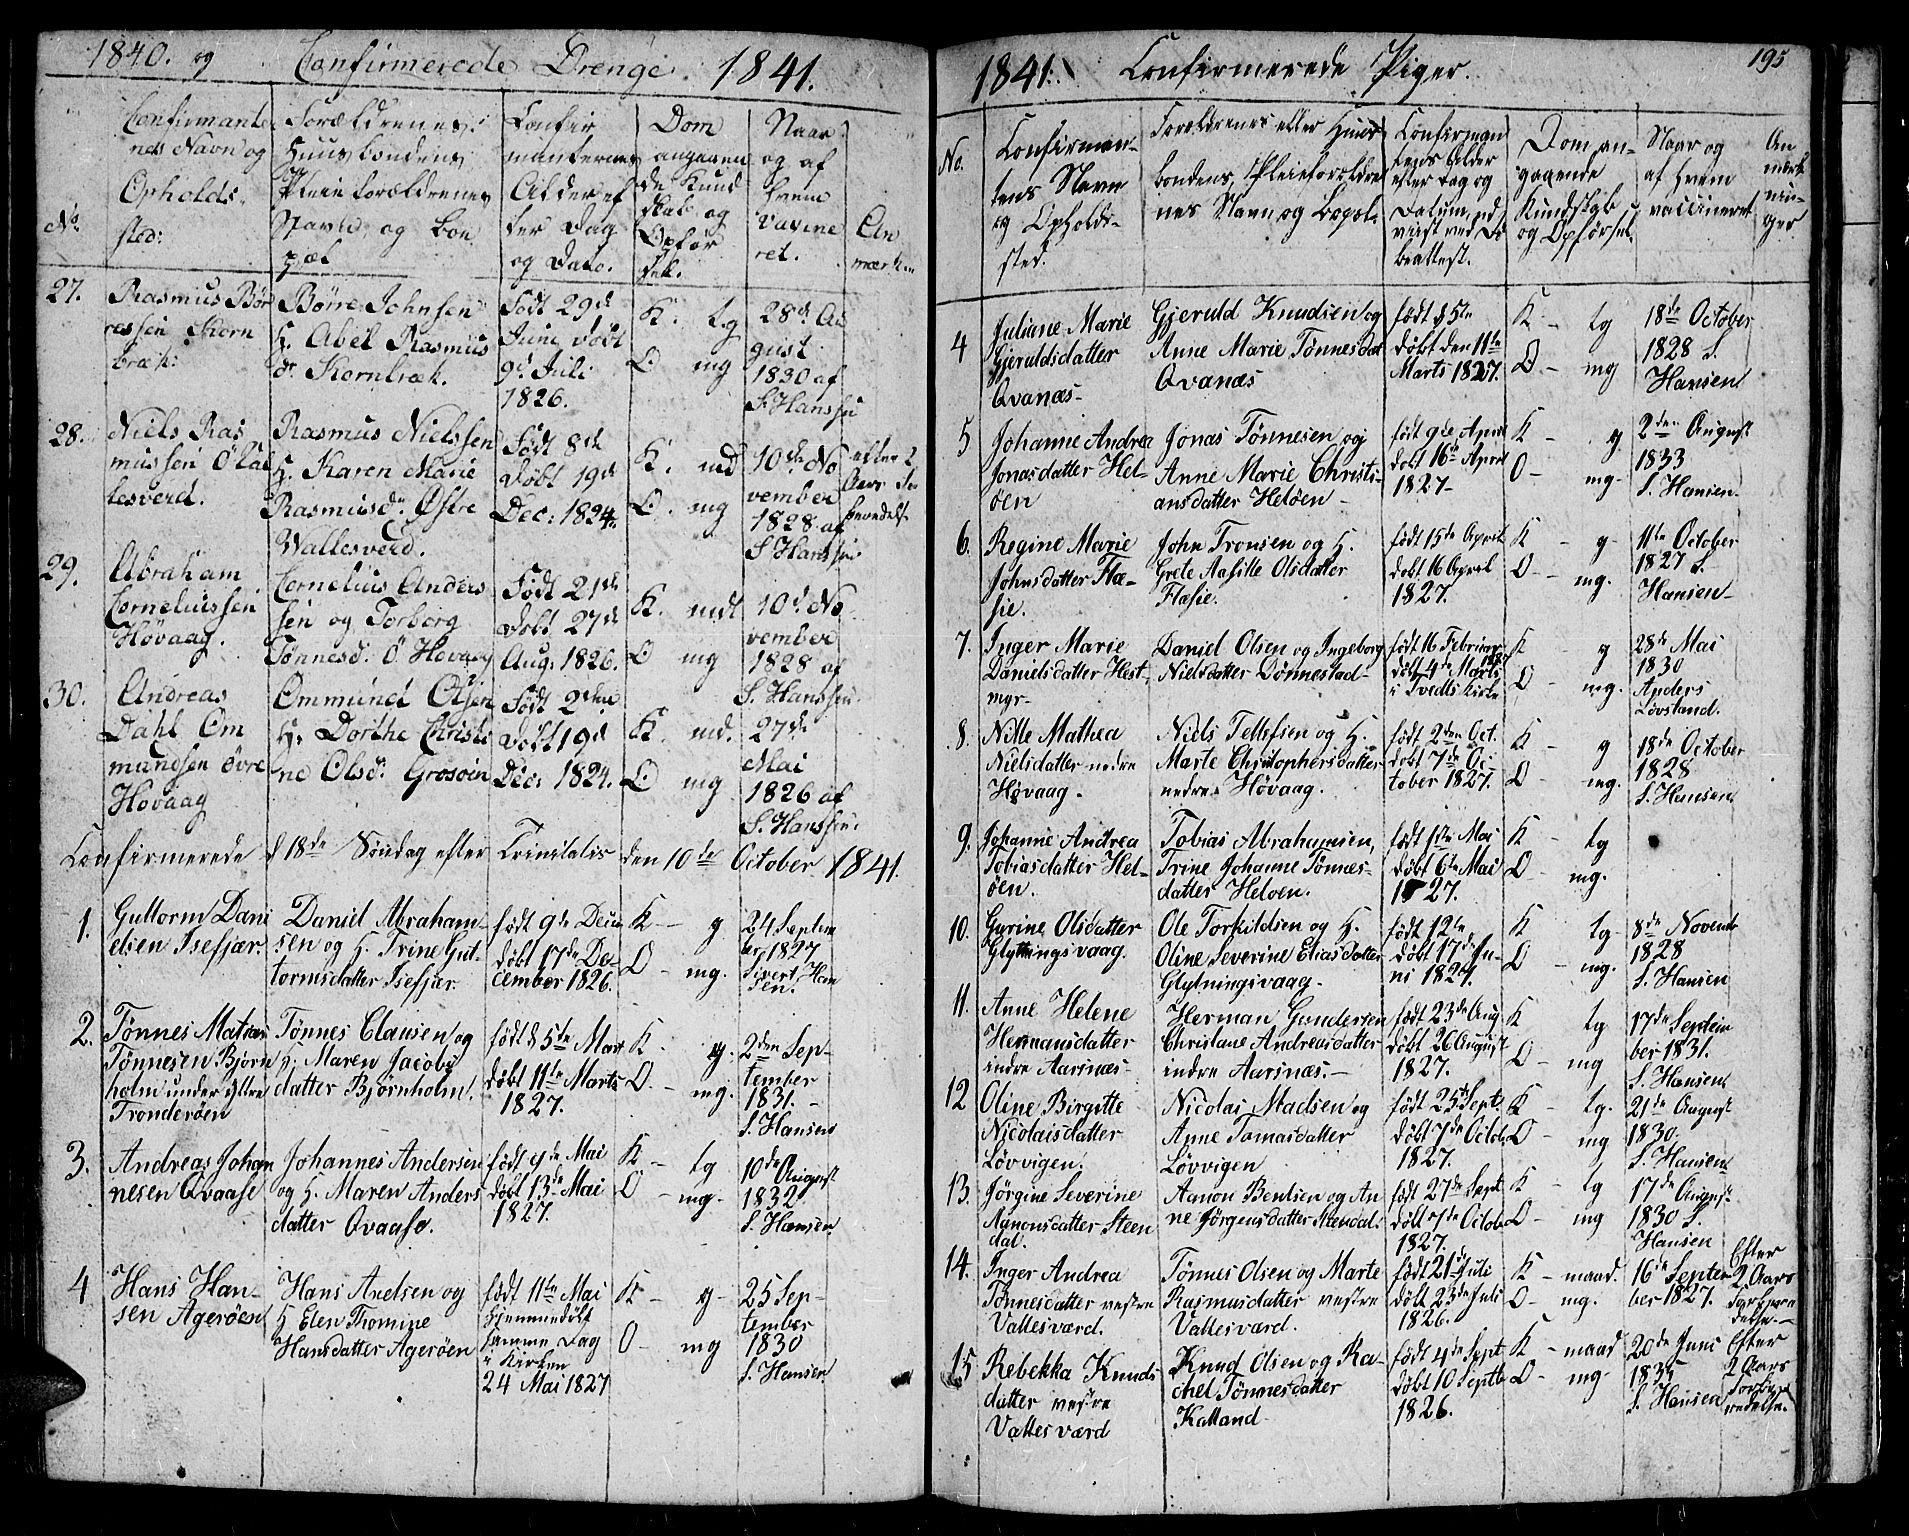 1840. og Confirmerede Drenge. 1841.
No.
Confirmanter
nes Navn og
Opholds-
sted:
Forældrenes.
Huusbondens
Pleieforældrenes
Navn og Bo
pæl
Confir
manternes
Alder ef
ter Dag
og Dato.
Dom
angaaen
de Kund
skab og
Opfør
sel.
Naar
og af
hvem
vaccine
ret.
An
mærkn
27.
Rasmus Bør
resen Korn
bræk:
Børre Johnsen
H. Abel Rasmus
dr. Kornbræk.
Født 29d
Juni døbt
9d Juli
1826.
K. tg
O. mg
28d. Au
gust
1830 af
S. Hanssen
28.
Niels Ras
mussen
lesverd.
Rasmus Nielssen
H. Karen Marie
Rasmusdr. Østre
Wallesverd.
Født 8de
Døbt 19d
Dec: 1824.
K. md
O. mg
10de No
vember
1828 af
S. Hanssen
efter 2
Aars
29.
Abraham
Corneliussen
Høvaag.
Cornelius Anders
sen og Torborg
Tønnesd. Ö. Høvaag
Født 21de
Døbt 27d
Aug: 1826.
K. mdt
O mg
10d. No
vember
1828 af
S. Hanssen.
30.
Andreas
Dahl Om
mundsen övre
Høvaag
Ommund Olsen
H. Dorthe Christi
ne Olsd. Grosöin
Født 2den
Døbt 19d
Dec: 1824.
K. md.
O. mg
27de
Mai
1826 af
S. Hanssen.
Confirmerede d 18de Søndag efter Trinitatis den 10de October 1841.
1.
Guttorm Dani
elsen Isefjær.
Daniel Abraham-
sen og H. Trine Gut-
tormsdatter Isefjær.
født 9de Decem
døbt 17de De-
cember 1826.
K - g
O - mg.
24 Septem
ber 1827
Sivert Han
sen.
2.
Tønnes Mathias
Tønnesen Bjørn
holm under yttre
Tronderöen
Tønnes Clausen og
H. Maren Jacobs
datter Bjørnholm.
født d 5te Mart
døbt 11te Marts
1827.
K - g.
O. - mg.
2den Sep-
tember
1831. -
S. Hansen
3.
Andreas Johan
nesen Qvaase
Johannes Andersen
og H. Maren Anders
datter Qvaase.
født 9de Mai
døbt 13de Mai
1827.
K - tg
O - mg.
10de August
1832
S. Hansen.
4
Hans Han-
sen Agerøen
Hans Axelsen og
H Elen Thomine
Hansdatter Agerøen
født 11te Mai
hjemmedöbt
samme Dag
i Kirken
24 Mai 1827
K - g -
O - mg
25 Sep-
tember
1830
S. Hansen
1841. Confirmerede Piger. 195
No.
Confirman-
tens Navn
og Opholds-
sted.
Forældrenes eller Huus
bondens, Pleieforældre
nes Navn og Bopæl.
Confirman
tens Alder
efter Dag og
Datum, ud
viist ved Dö
beattest.
Dom an-
gaaende
Kundskab
og Opførsel.
Naar og
af hvem
vaccineret
An
mærk
nin-
ger
4
Juliane Marie
Gjeruldsdatter
Qvanæs-
Gjeruld Knudsen og
Anne Marie Tønnesdat
Qvanæs
født d 5te
døbt den 11te
Marts 1827.
K - tg
O - mg
18de October
1828 S.
Hansen
5
Johanne Andrea
Jonasdatter Hel-
öen
Jonas Tønnesen og
Anne Marie Christi-
ansdatter Helöen -
født 9de April
døbt 16de April
1827-
K - g.
O - mg.
2den August
1833
S. Hansen-
6.
Regine Marie
Johnsdatter Flæ-
sie.
John Tronsen og H.
Grete Aasille Olsdatter
Flæsie.
født 15de April
døbt 16 April
1827.
K - g -
O - mg.
11te October
1827 S.
Hansen-
7.
Inger Marie
Danielsdatter Hest-
myr-
Daniel Olsen og Ingeborg
Nielsdatter Dønnestad-
født 16 Februar
døbt 4de Marts
i Tvedts Kirke
K - g
O - mg.
28de Mai
1830
Anders
Løvstand.
8.
Nille Mathea
Nielsdatter nedre
Høvaag.
Niels Tellefsen og H.
Marte Christophersdatter
nedre Høvaag.
født 2den Oct.
døbt 7de Oc-
tober 1827.
K - g
O - mg.
18de October
1828
S. Hansen
9.
Johanne Andrea
Tobiasdatter Hel-
öen.
Tobias Abrahamsen,
Trine Johanne Tønnes-
datter Heloen.
født 1ste Mai
døbt 6te Mai
1827.
K - tg
O - mg.
10.
Gurine Olsdatter
Glytningsvaag.
Ole Torkildsen og H.
Oline Severine Eliasdatter
Glytningsvaag-
født 12te
døbt 17de Ju-
ni 1827.
K tg-
O - mg.
8de Novemb
1828
S. Hansen
11.
Anne Helene
Hermansdatter
indre Aarsnæs-
Herman Gundersen
Christane Andreasdatter
indre Aarsnæs.-
født 23de Aug.
døbt 26 August
1827.
K tg
O - mg
17de Septem
ber 1831.
S. Hansen
12
Oline Birgitte
Nicolaisdatter
Løvvigen.
Nicolai Madsen og
Anne Tomasdatter
Løvvigen
født 25de Sept.
døbt 7de Octob
1827.
K - tg.
O - mg
21de August
1830.
S. Hansen
13.
Jörgine Severine
Aanonsdatter Steen
dal.
Aanon Bentsen og An
ne Jørgensdatter Stendal.
født 27de Sept.
døbt 7de Octob
1827.
K - tg
O - mg
17de August
1830 S.
Hansen
14.
Inger Andrea
Tønnesdatter vestre
Vallesværd.
Tønnes Olsen og Marte
Rasmusdatter vestre
Vallesværd.
født 21de Juli
døbt 23de Juli
1826.
K - maad.
O - mg.
16de Septem
ber 1827.
Efter
2 Aars
forbere
delse.-
15
Rebekka Knuds
datter vestre
Vallesværd
Knud Olsen og Ra-
chel Tønnesdatter
Kalland-
født 4de Sept.
døbt 10 Septb
1826.
K - maad
O - mg-
20de Juni
1835
S. Hansen
Efter
2 Aars
Forbe
redelse.